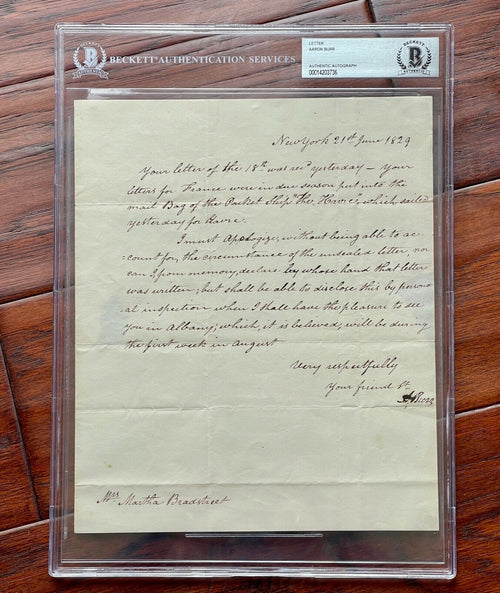 BECKETT AUTHENTICATION SERVICES
LETTER
AARON BURR
AUTHENTIC AUTOGRAPH
00014203736
BECKETT
BECKETT
New York 21st June 1829
Your letter of the 18th was recd yesterday — Your
letters for France were in due season put into the
mail Bag of the Packet Ship "The Havre, which sailed
yesterday for Havre.
I must Apologize, without being able to ac-
=count for, the circumstance of the unsealed letter, nor
can I from memory, declare by whose hand that letter
was written; but shall be able to disclose this by person-
al inspection when I shall have the pleasure to see
you in Albany; which, it is believed, will be during
the first week in august
Very respectfully
Your friend St
A. Burr
Mrs Martha Bradstreet